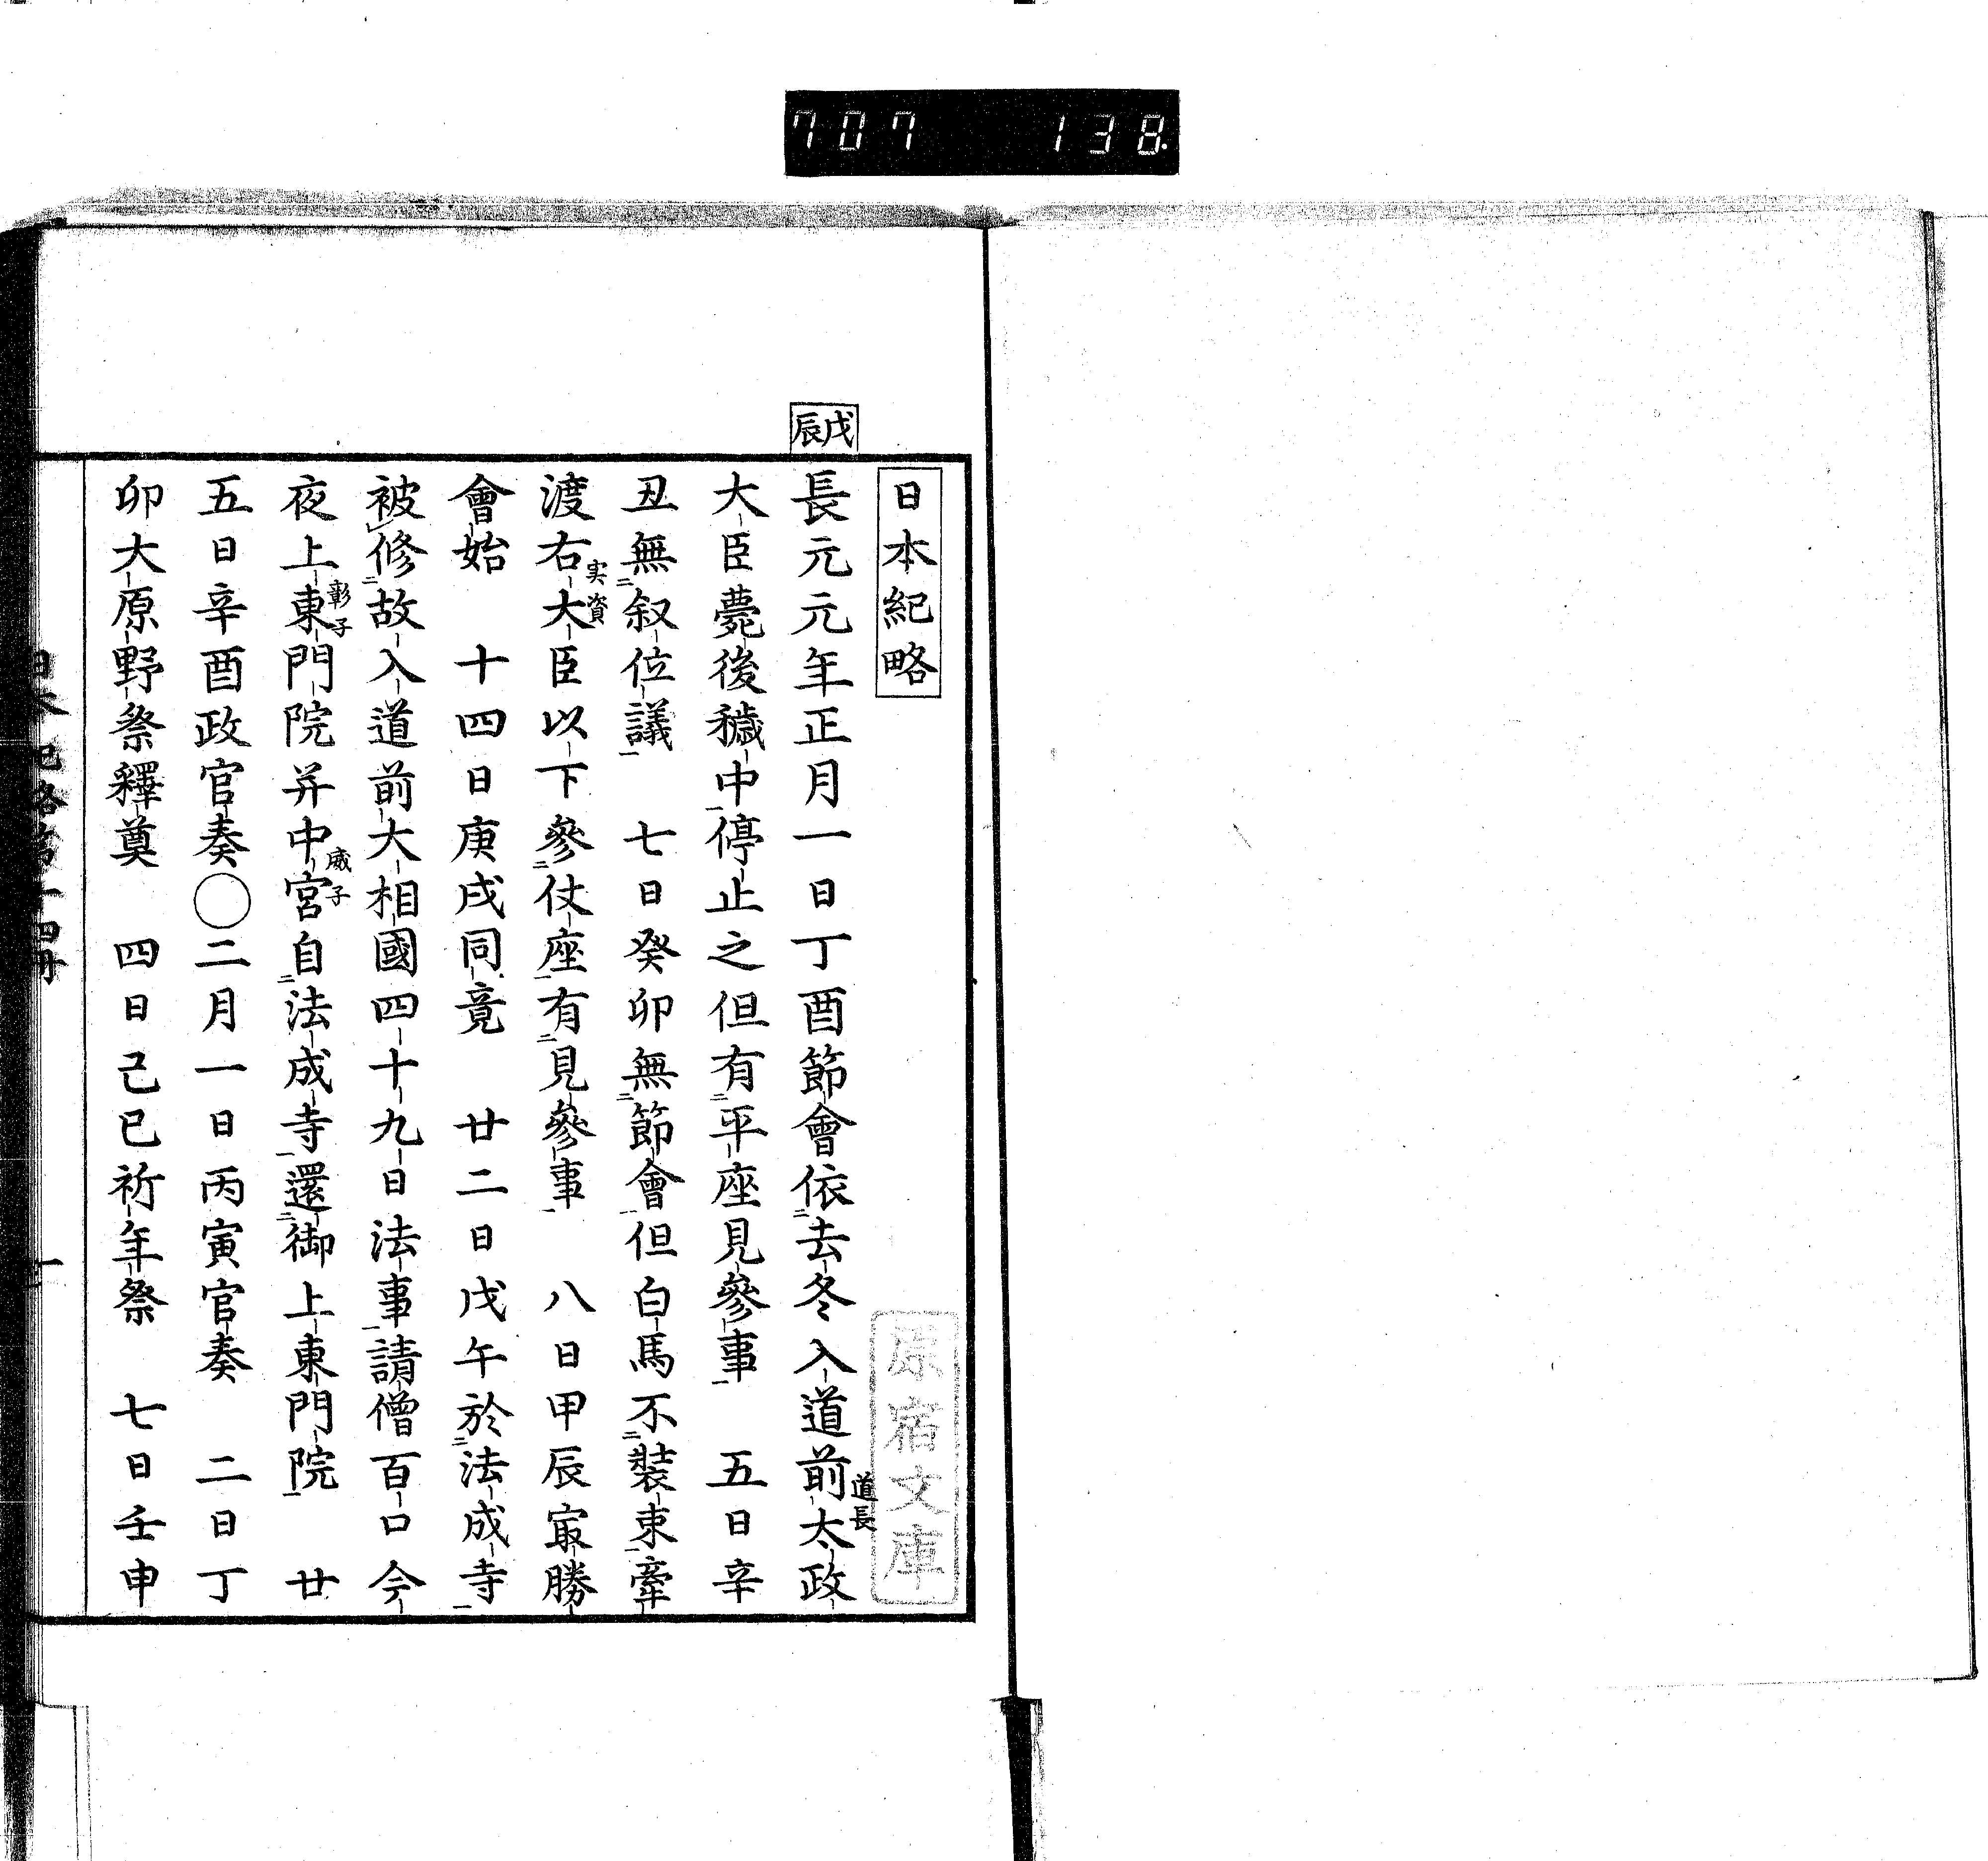 707 138
戊辰
日本紀略
原宿文庫
長元元年正月一日丁酉節會依二去冬入道前太政
道長
大臣薨後穢中一停止之但有二平座見參事一 五日辛
丑無二叙位議一 七日癸卯無二節會一但白馬不二裝束一牽
渡右大臣以下參二仗座一有二見參事一 八日甲辰冣勝
実資
會始 十四日庚戌同竟 廿二日戊午於二法成寺一
被レ修二故入道前大相國四十九日法事一請僧百口今
夜上東門院并中宮自二法成寺一還二御上東門院一 廿
彰子
威子
五日辛酉政官奏〇二月一日丙寅官奏 二日丁
卯大原野祭釋奠 四日己巳祈年祭 七日壬申